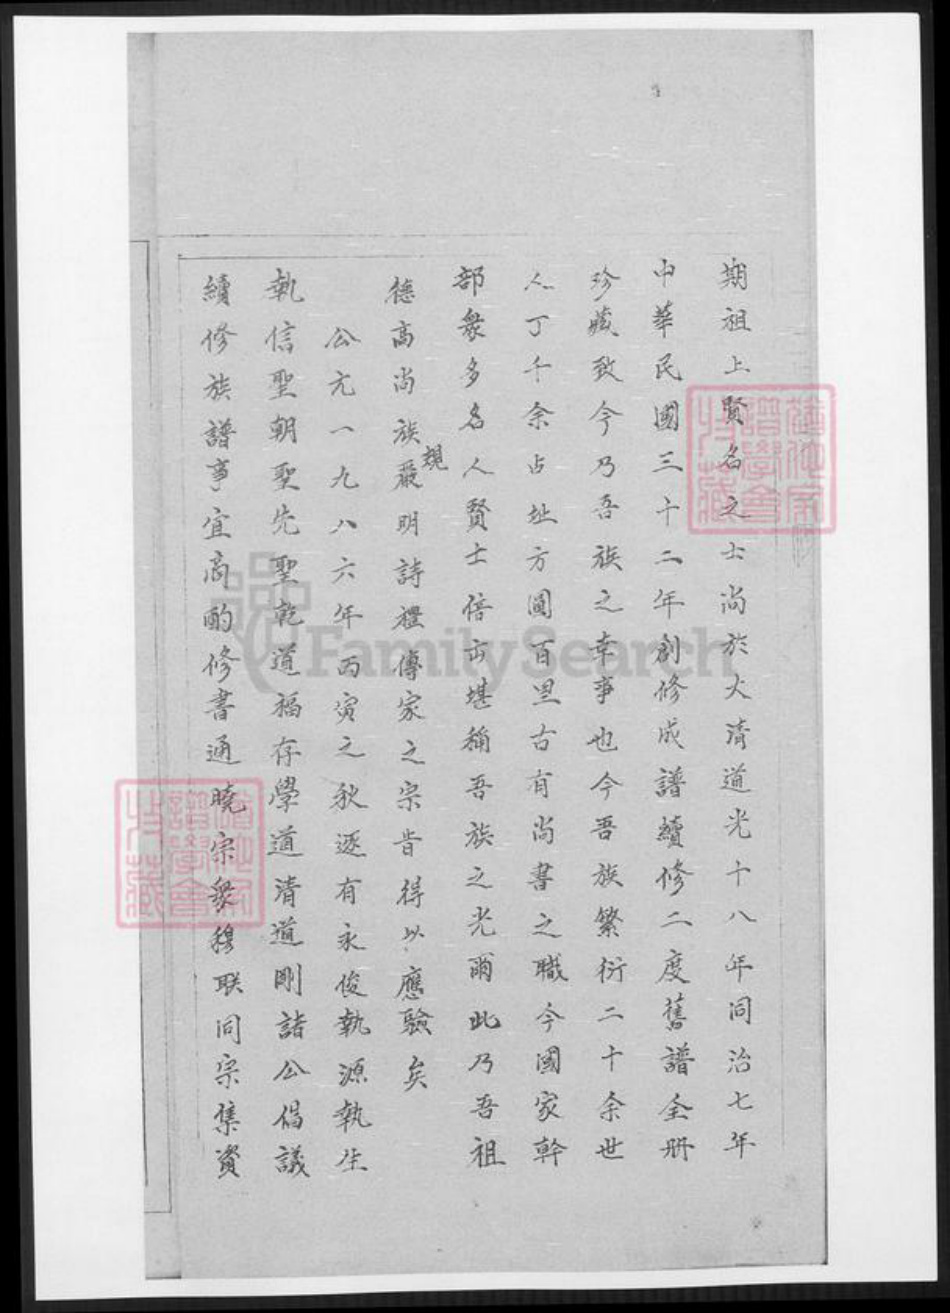 期祖上賢名之士尚於大清道光十八年同治七年
中華民國三十二年創修成譜續修二度舊譜全册
珍藏致今乃吾族之幸事也今吾族繁衍二十余世
人丁千余占址方圓百里古有尚書之職今國家幹
部衆多名人賢士倍出堪稱吾族之光爾此乃吾祖
德高尚族規嚴明詩禮傳家之宗旨得以應驗矣
公元一九八六年丙寅之秋遂有永俊執源執生
執信聖朝聖先聖乾道福存學道清道剛諸公倡議
續修族譜事宜商酌修書通曉宗衆穆联同宗集資
FamilySearch